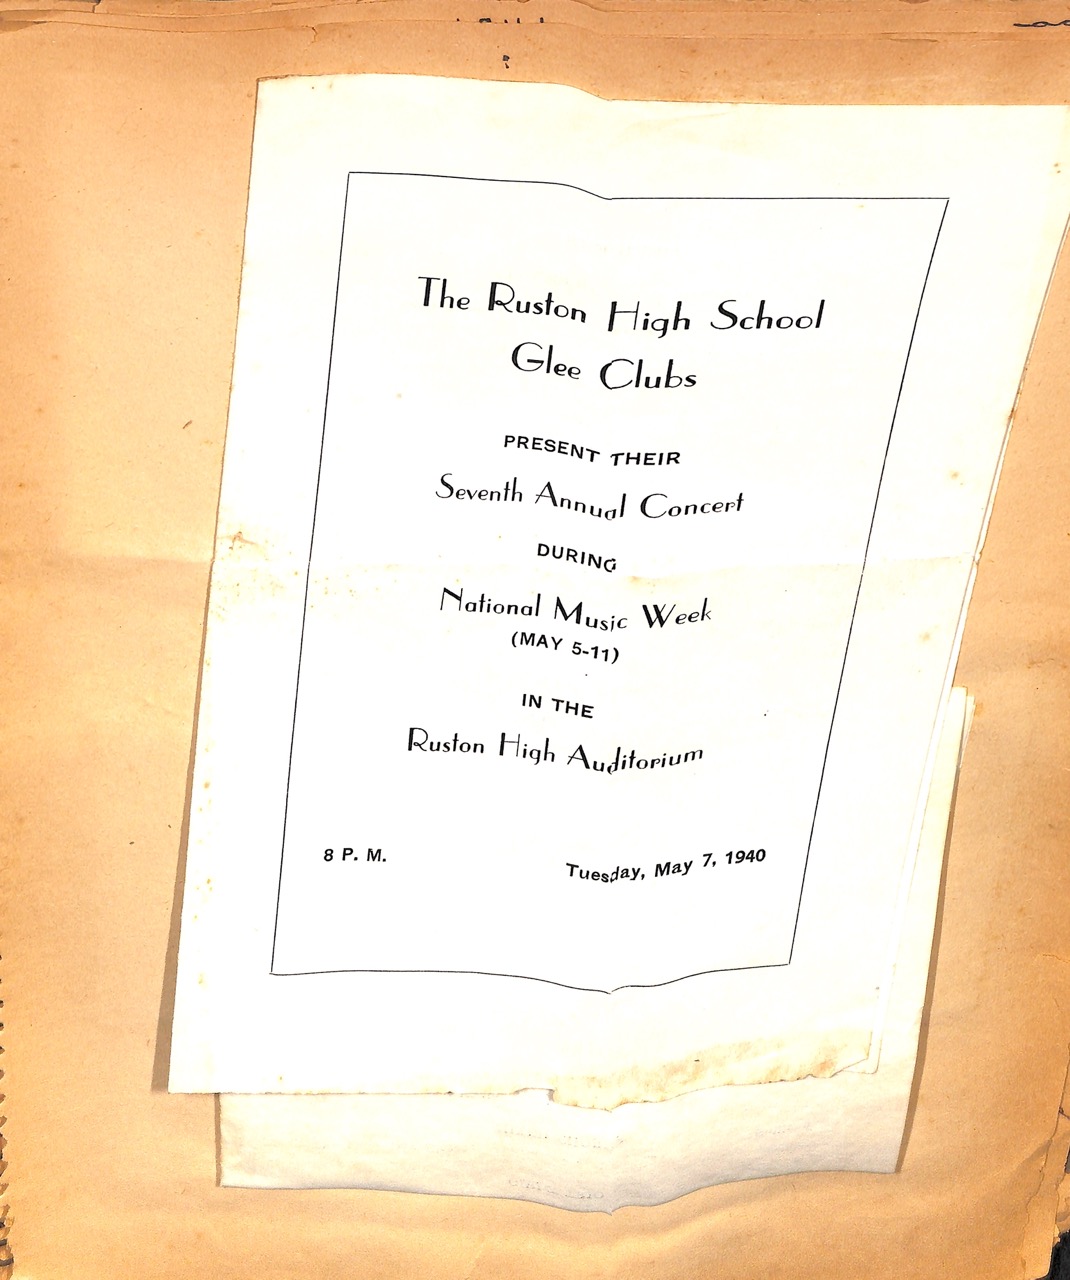 The Ruston High School
Glee Clubs
PRESENT THEIR
Seventh Annual Concert
DURING
National Music Week
(MAY 5-11)
IN THE
Ruston High Auditorium
8 P. M.
Tuesday, May 7, 1940